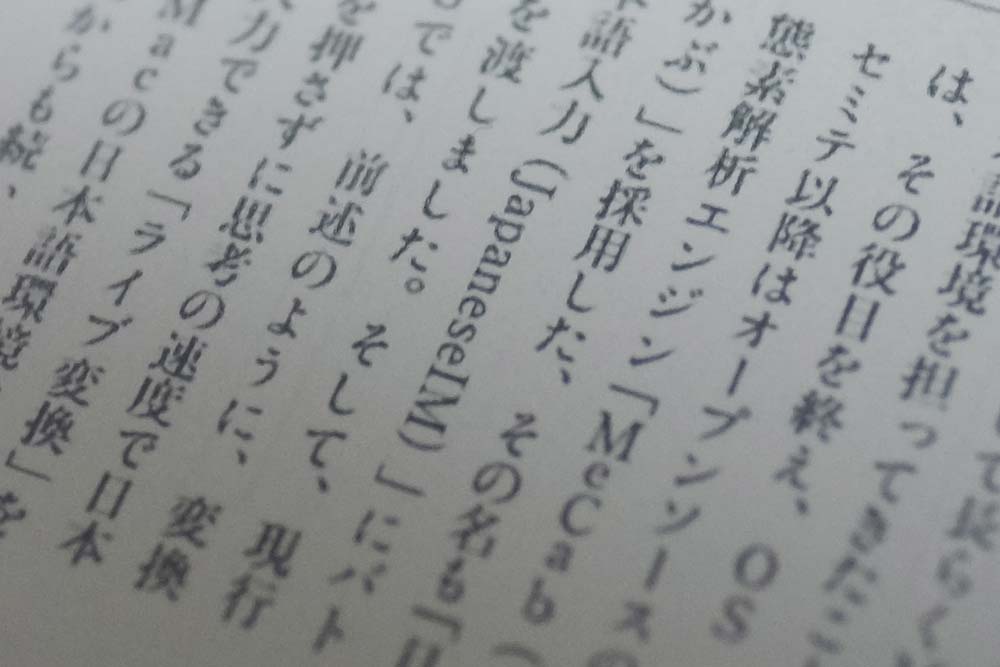 して長らく
語環境を担ってきたこ
は、その役目を終え、OS
セミテ以降はオープンソースの
態素解析エンジン「MeCab（
かぶ）」を採用した、その名も「日
語入力（JapaneseIM）」にバト
を渡しました。そして、現行
では、前述のように、変換
を押さずに思考の速度で日本
入力できる「ライブ変換」を
Macの日本語環境
からも続